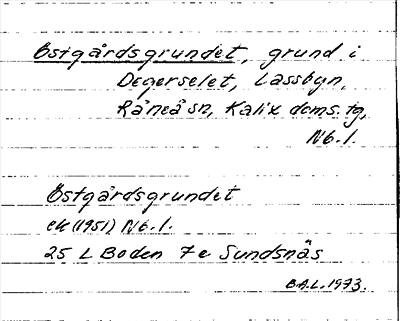 Östgårdsgrundet, grund i
Degerselet, Lassbyn,
Råneå sn, Kalix doms. tg,
Nb. l.
Östgårdsgrundet
ek (1951) Nb. l.
25 L Boden 7e Sundsnäs
B.A.L. 1973.